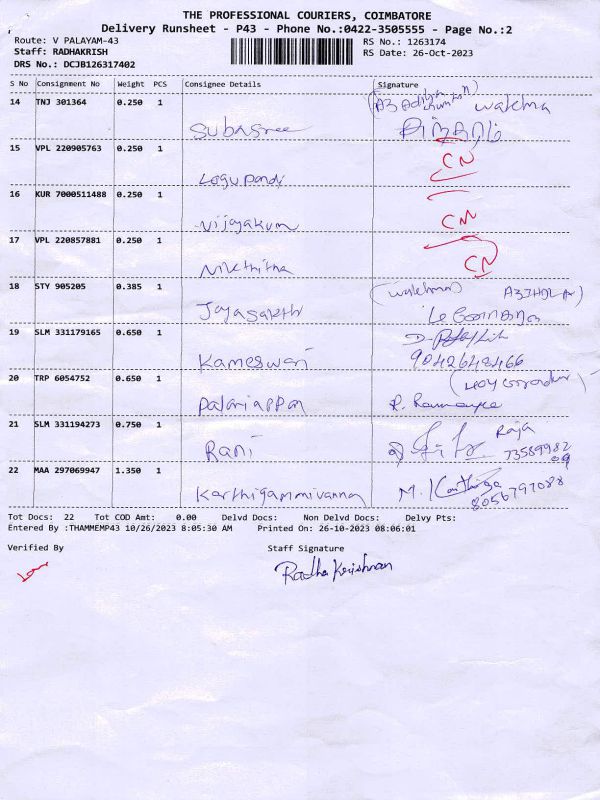 THE PROFESSIONAL COURIERS, COIMBATORE
Delivery Runsheet - P43 - Phone No.:0422-3505555 - Page No.:2
Route: V PALAYAM-43
RS No.: 1263174
Staff: RADHAKRISH
RS Date: 26-Oct-2023
DRS No.: DCJB126317402
S No Consignment No Weight PCS Consignee Details Signature
14 TNJ 301364 0.250 1
Subasree
15 VPL 220905763 0.250 1 CN
Logupandi
16 KUR 7000511488 0.250 1 CN
Vijayakum
17 VPL 220857881 0.250 1
CN
18 STY 905205 0.385 1
Jayasakthi
19 SLM 331179165 0.650 1
Kameswari 9042648466
20 TRP 6054752 0.650 1
Palaniappan
21 SLM 331194273 0.750 1 Raja
Rani 73589982
09
22 MAA 297069947 1.350 1
M. 8056797088
Tot Docs: 22 Tot COD Amt: 0.00 Delvd Docs: Non Delvd Docs: Delvy Pts:
Entered By :THAMMEMP43 10/26/2023 8:05:30 AM Printed On: 26-10-2023 08:06:01
Verified By Staff Signature
Radha Krishnan